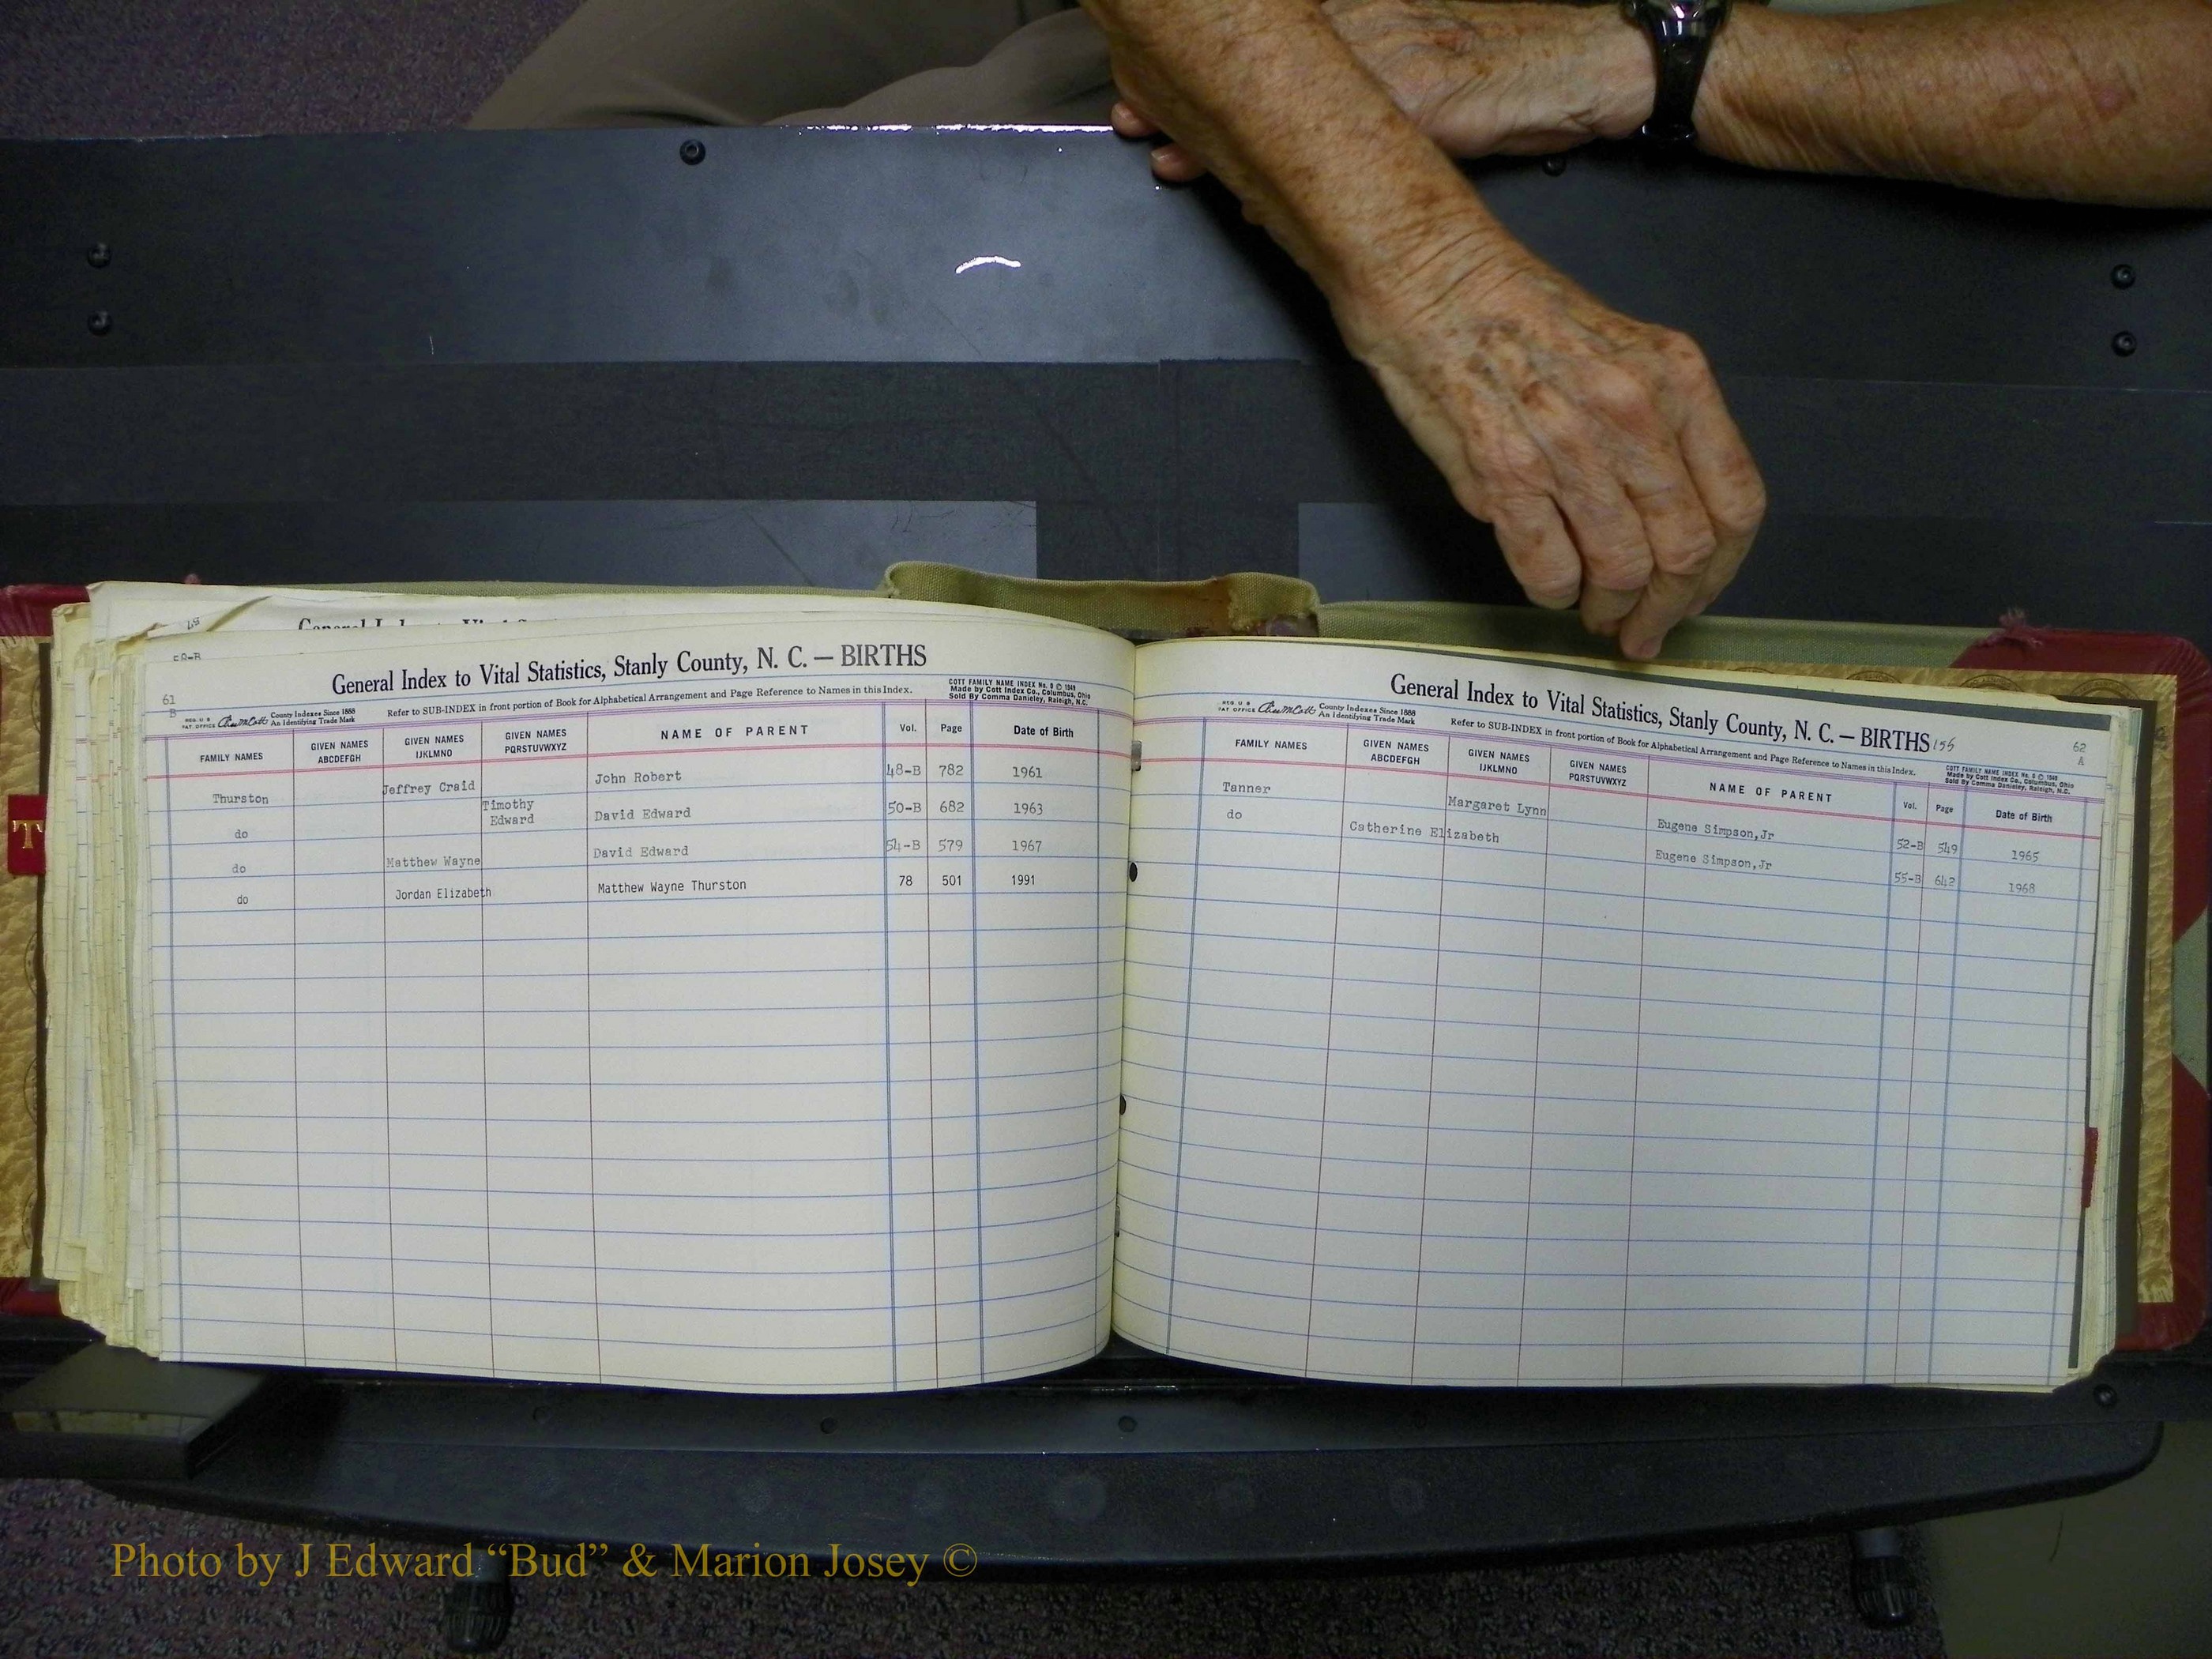 57
General Index to Vital Stat
58-B
General Index to Vital Statistics, Stanly County, N. C. — BIRTHS
61
B
REG. U S
PAT. OFFICE
County Indexes Since 1888
An Identifying Trade Mark
Refer to SUB-INDEX in front portion of Book for Alphabetical Arrangement and Page Reference to Names in this Index.
COTT FAMILY NAME INDEX No. 8 © 1949
Made by Cott Index Co., Columbus, Ohio
Sold By Comma Danieley, Raleigh, N.C.
FAMILY NAMES GIVEN NAMES ABCDEFGH GIVEN NAMES IJKLMNO GIVEN NAMES PQRSTUVWXYZ NAME OF PARENT Vol. Page Date of Birth
Thurston Jeffrey Craid John Robert 48-B 782 1961
do Timothy Edward David Edward 50-B 682 1963
do Matthew Wayne David Edward 54-B 579 1967
do Jordan Elizabeth Matthew Wayne Thurston 78 501 1991
T
General Index to Vital Statistics, Stanly County, N. C. — BIRTHS 155
62
A
REG. U S
PAT OFFICE
County Indexes Since 1888
An Identifying Trade Mark
Refer to SUB-INDEX in front portion of Book for Alphabetical Arrangement and Page Reference to Names in this Index.
COTT FAMILY NAME INDEX No. 8 © 1949
Made by Cott Index Co., Columbus, Ohio
Sold By Comma Danieley, Raleigh, N.C.
FAMILY NAMES GIVEN NAMES ABCDEFGH GIVEN NAMES IJKLMNO GIVEN NAMES PQRSTUVWXYZ NAME OF PARENT Vol. Page Date of Birth
Tanner Margaret Lynn Eugene Simpson,Jr 52-B 549 1965
do Catherine Elizabeth Eugene Simpson,Jr 55-B 642 1968
Photo by J Edward “Bud” & Marion Josey ©